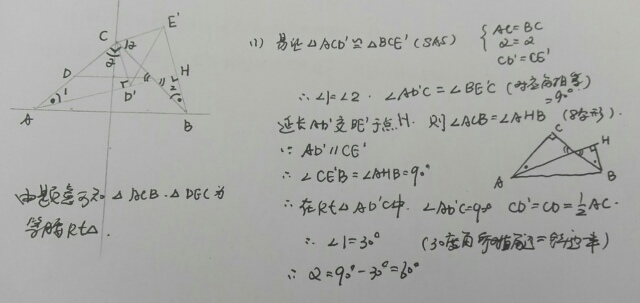 C
E'
D
H
D'
A
B
由题意可知 △ACB、△DEC为
等腰Rt△.
(1) 易证△ACD'≌△BCE' (SAS)
{ AC=BC
α=α
CD'=CE'
∴∠1=∠2. ∠AD'C=∠BE'C (对应角相等)
=90°
延长AD'交BE'于点H. 则∠ACB=∠AHB (8字形).
∵ AD'∥CE'
∴ ∠CE'B=∠AHB=90°
∴ 在Rt△AD'C中. ∠AD'C=90° CD'=CD=½AC.
∴ ∠1=30° (30度角所对直角边=斜边一半)
∴ α=90°-30°=60°
C
H
A
B